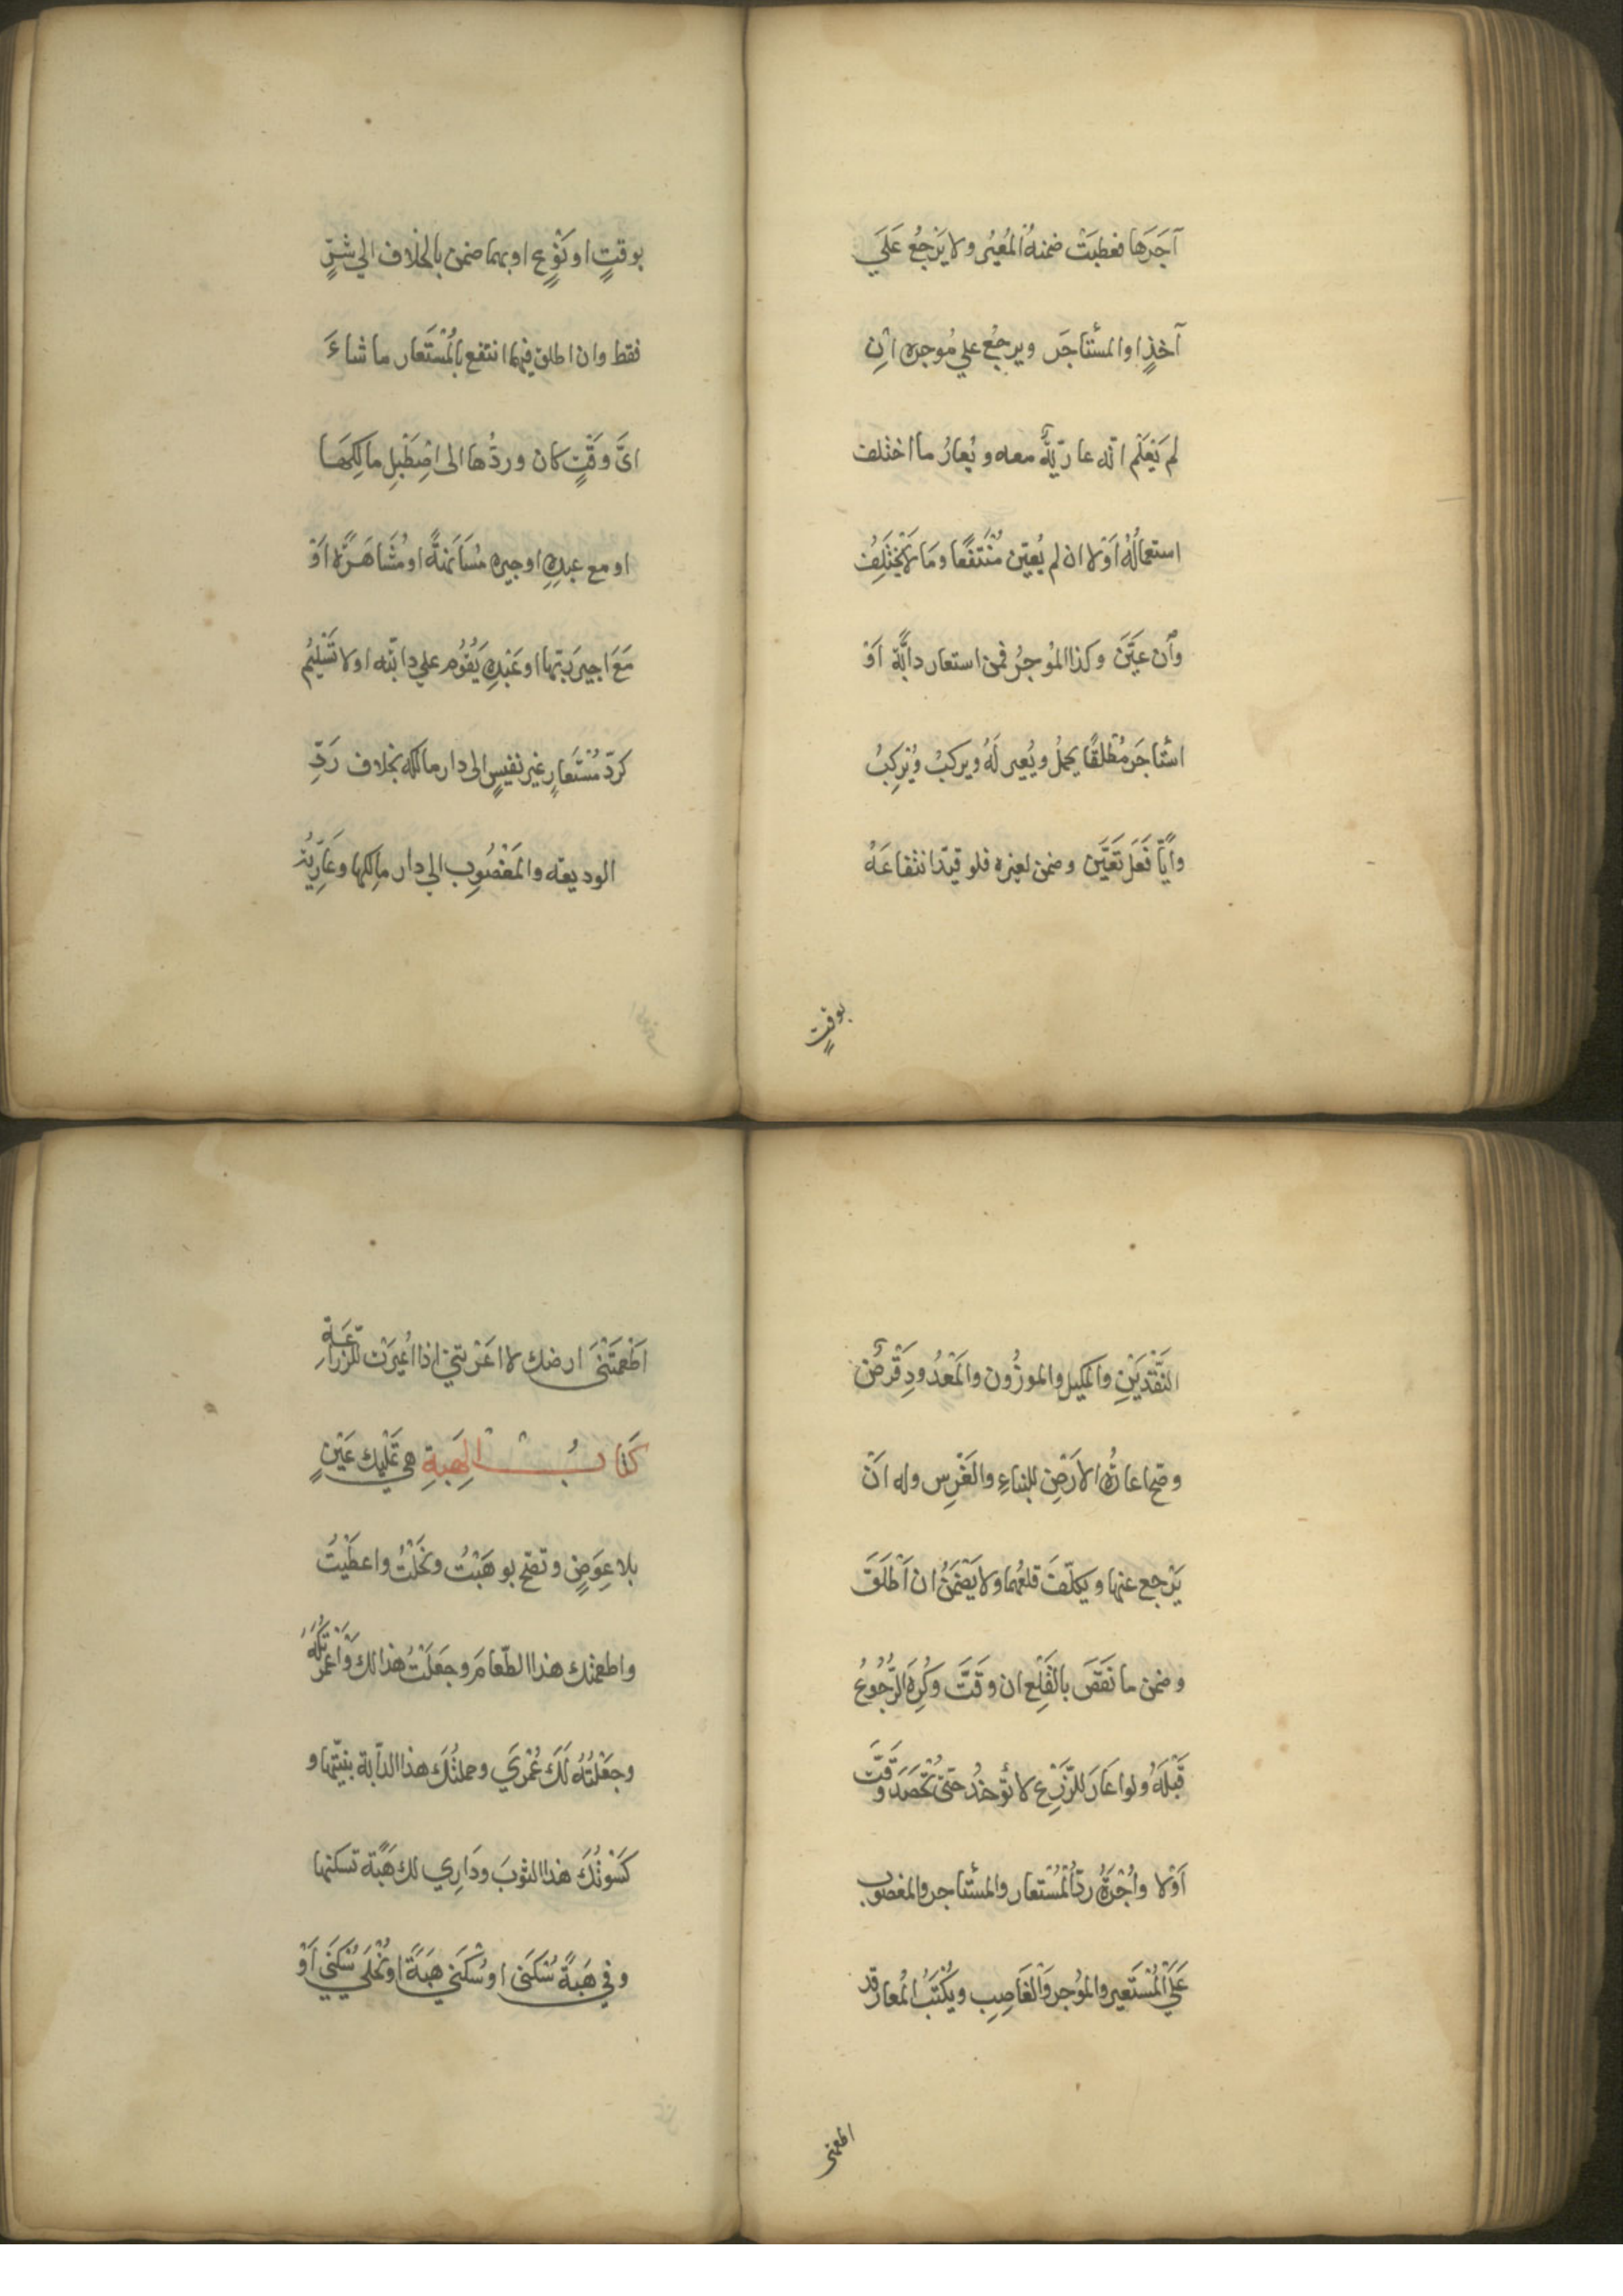 آجَرَها فعطبَتْ ضمنهُ المُعيُر ولا يَرْجِعُ عَلَي
آخذٍ او المستأجَر ويرجعُ علي مُوجره انِ
لم يَعْلَم انّه عاريّةٌ معه ويُعارُ ما اختلف
استعمالُهُ اَوْلا ان لم يُعيّن مُنْتفعًا ومَا لا يَخْتَلِفُ
وان عيَّنَ وكذا المُوجرُ فمن استعار دابَّة اَوْ
استأجَر مُطْلقًا يحملُ ويُعير لَهُ ويركبُ ويُرْكِبُ
واَيّاً فَعَلَ تَعَيَّن وضمن لغيره فلو قيّد انتفاعَهُ
بوقتٍ
بوقتٍ او نَوْعٍ او بهما ضمن بالخلاف الي شَرٍّ
فقط وان اطلق فيهما انتفع بالمُسْتَعار ما شاءَ
ايَّ وَقْتٍ كان وردُّها الى اِصْطَبْلِ مالِكِهَا
او مع عبدِهِ او جيره مُسَانَهةً او مُشَاهَرَةً اَوْ
مَعَ اجيرِ رَبّها او عَبْدِهِ يَقُوُم علي دابّته اولا تَسْلِيُم
كردّ مُسْتَعارٍ غير نفيسٍ الى دار مالكه بخلاف رَدِّ
الوديعة والمَغْصُوبِ الي دار مالِكها وعَارِيّة
النَّقْدَيْنِ والمكيل والموزُون والمَعْدُودِ قَرْضٌ
وصحّ اعارةُ الاَرْضِ للبناءِ والغَرْسِ وله اَنْ
يَرْجع عنها ويكلّفَ قلعَهُما ولا يَضْمَنُ ان اَطْلَقَ
وضمن ما نَقَصَ بالقَلْعِ ان وقَّتَ وَكُرِهَ الرُّجُوعُ
قَبْلَهُ ولو اعَارَ للزَّرْع لا تُؤخذُ حتّى تُحْصَدَ وَقَّتَ
اَوْلا واُجْرَةُ ردّ المُسْتعار والمستأجر والمغصوب
عَلَي المُسْتَعير والمُوجر وَالغَاصِبِ ويَكْتُبُ المُعار قد
اطعمتنى
اَطْعَمْتَنىَ ارضك لا اعَرْتَنيِ اذا اُعيرَت للزراعَة
كتابُ الهِبَةِ هي تَمْليك عَيْنٍ
بلا عِوَضٍ وتصّح بوهَبْتُ ونَحَلْتُ واعطَيْتُ
واطعمتك هذا الطّعامَ وجَعَلْتُ هذا لك وَاَعْمَرْتُكَهُ
وجَعَلْتُهُ لَكَ عُمْرَي وحملتُكَ هذا الدّابة بنيّتها و
كَسَوْتُكَ هذا الثوبَ ودَارِي لك هَبَةً تسكنها
وفي هَبَةً سُكنَى او سُكْنَي هَبَةً او نُحْلَي سُكنَي اَوْ